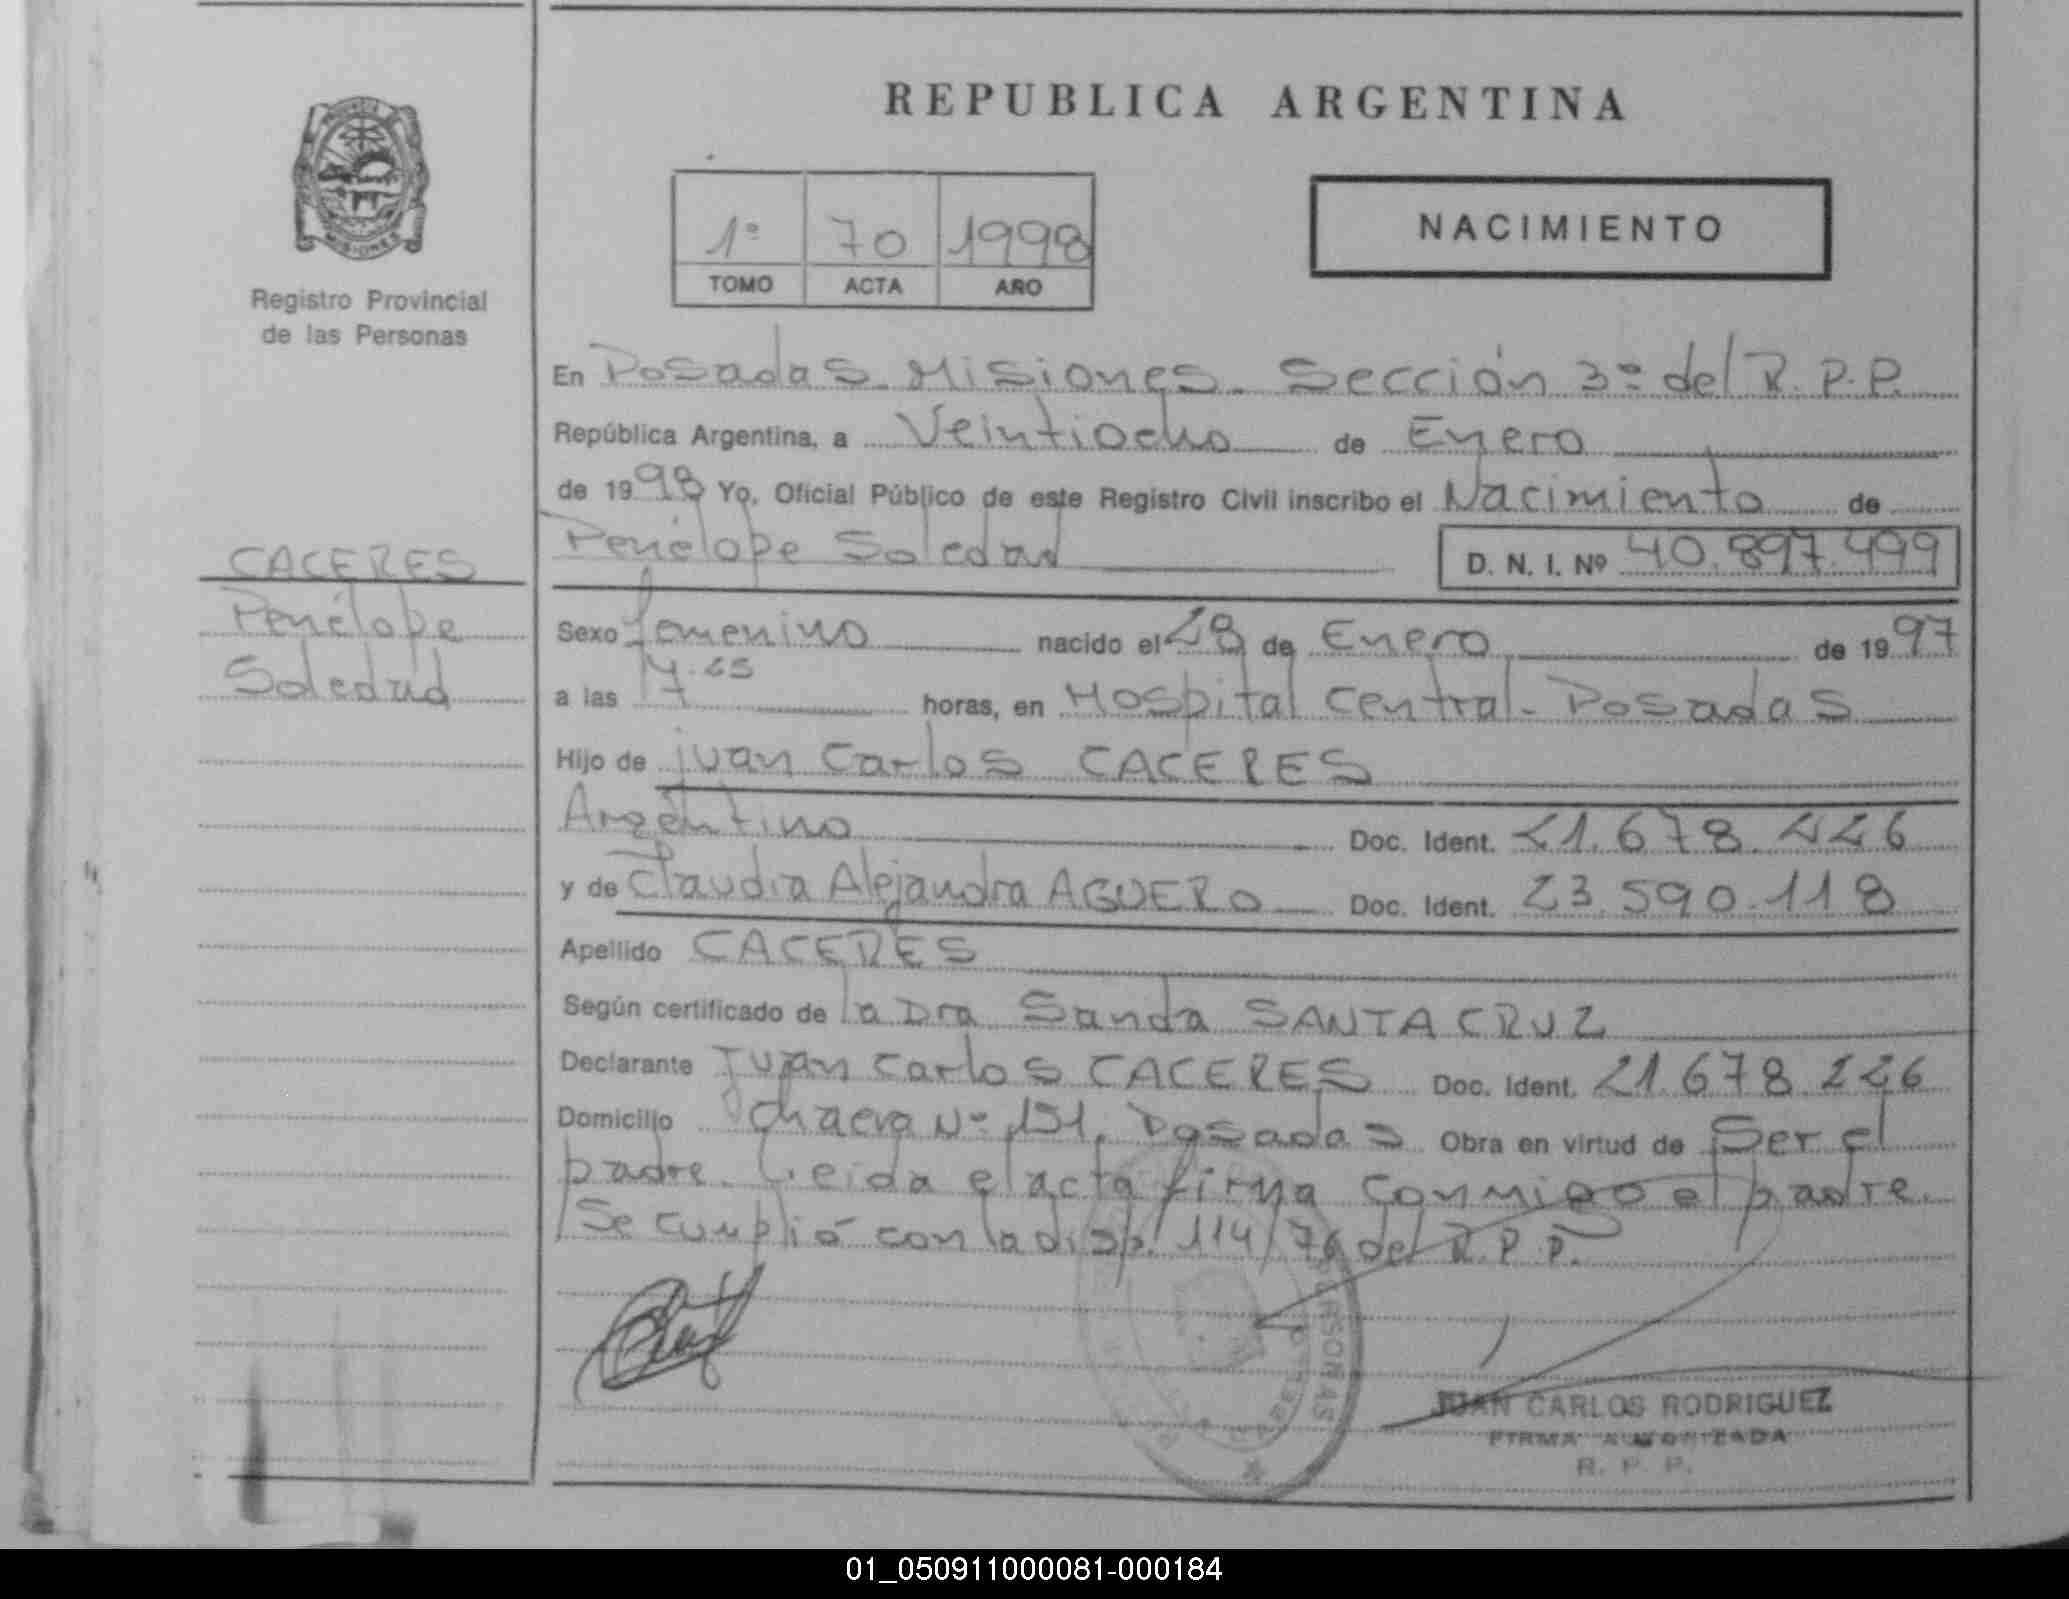 REPUBLICA ARGENTINA
MISIONES
Registro Provincial
de las Personas
1º 70 1998
TOMO ACTA AÑO
NACIMIENTO
En Posadas Misiones. Sección 3º del R.P.P.
República Argentina, a Veintiocho de Enero
de 1998 Yo, Oficial Público de este Registro Civil inscribo el Nacimiento de
Penélope Soledad D. N. I. Nº 40.897.499
CACERES
Penélope
Soledad
Sexo femenino nacido el 28 de Enero de 1997
a las horas, en Hospital Central - Posadas
Hijo de Juan Carlos CACERES
Argentino Doc. Ident. 21.678.226
y de Claudia Alejandra AGUERO Doc. Ident. 23.590.118
Apellido CACERES
Según certificado de la Dra Sanda SANTA CRUZ
Declarante Juan Carlos CACERES Doc. Ident. 21.678.226
Domicilio Chacra Nº 151, Posadas Obra en virtud de Ser el
padre. Leida el acta firma conmigo el padre.
Se cumplió con la disp. 114/76 del R.P.P.
PERSONAS
JUAN CARLOS RODRIGUEZ
FIRMA AUTORIZADA
R. P. P.
01_050911000081-000184